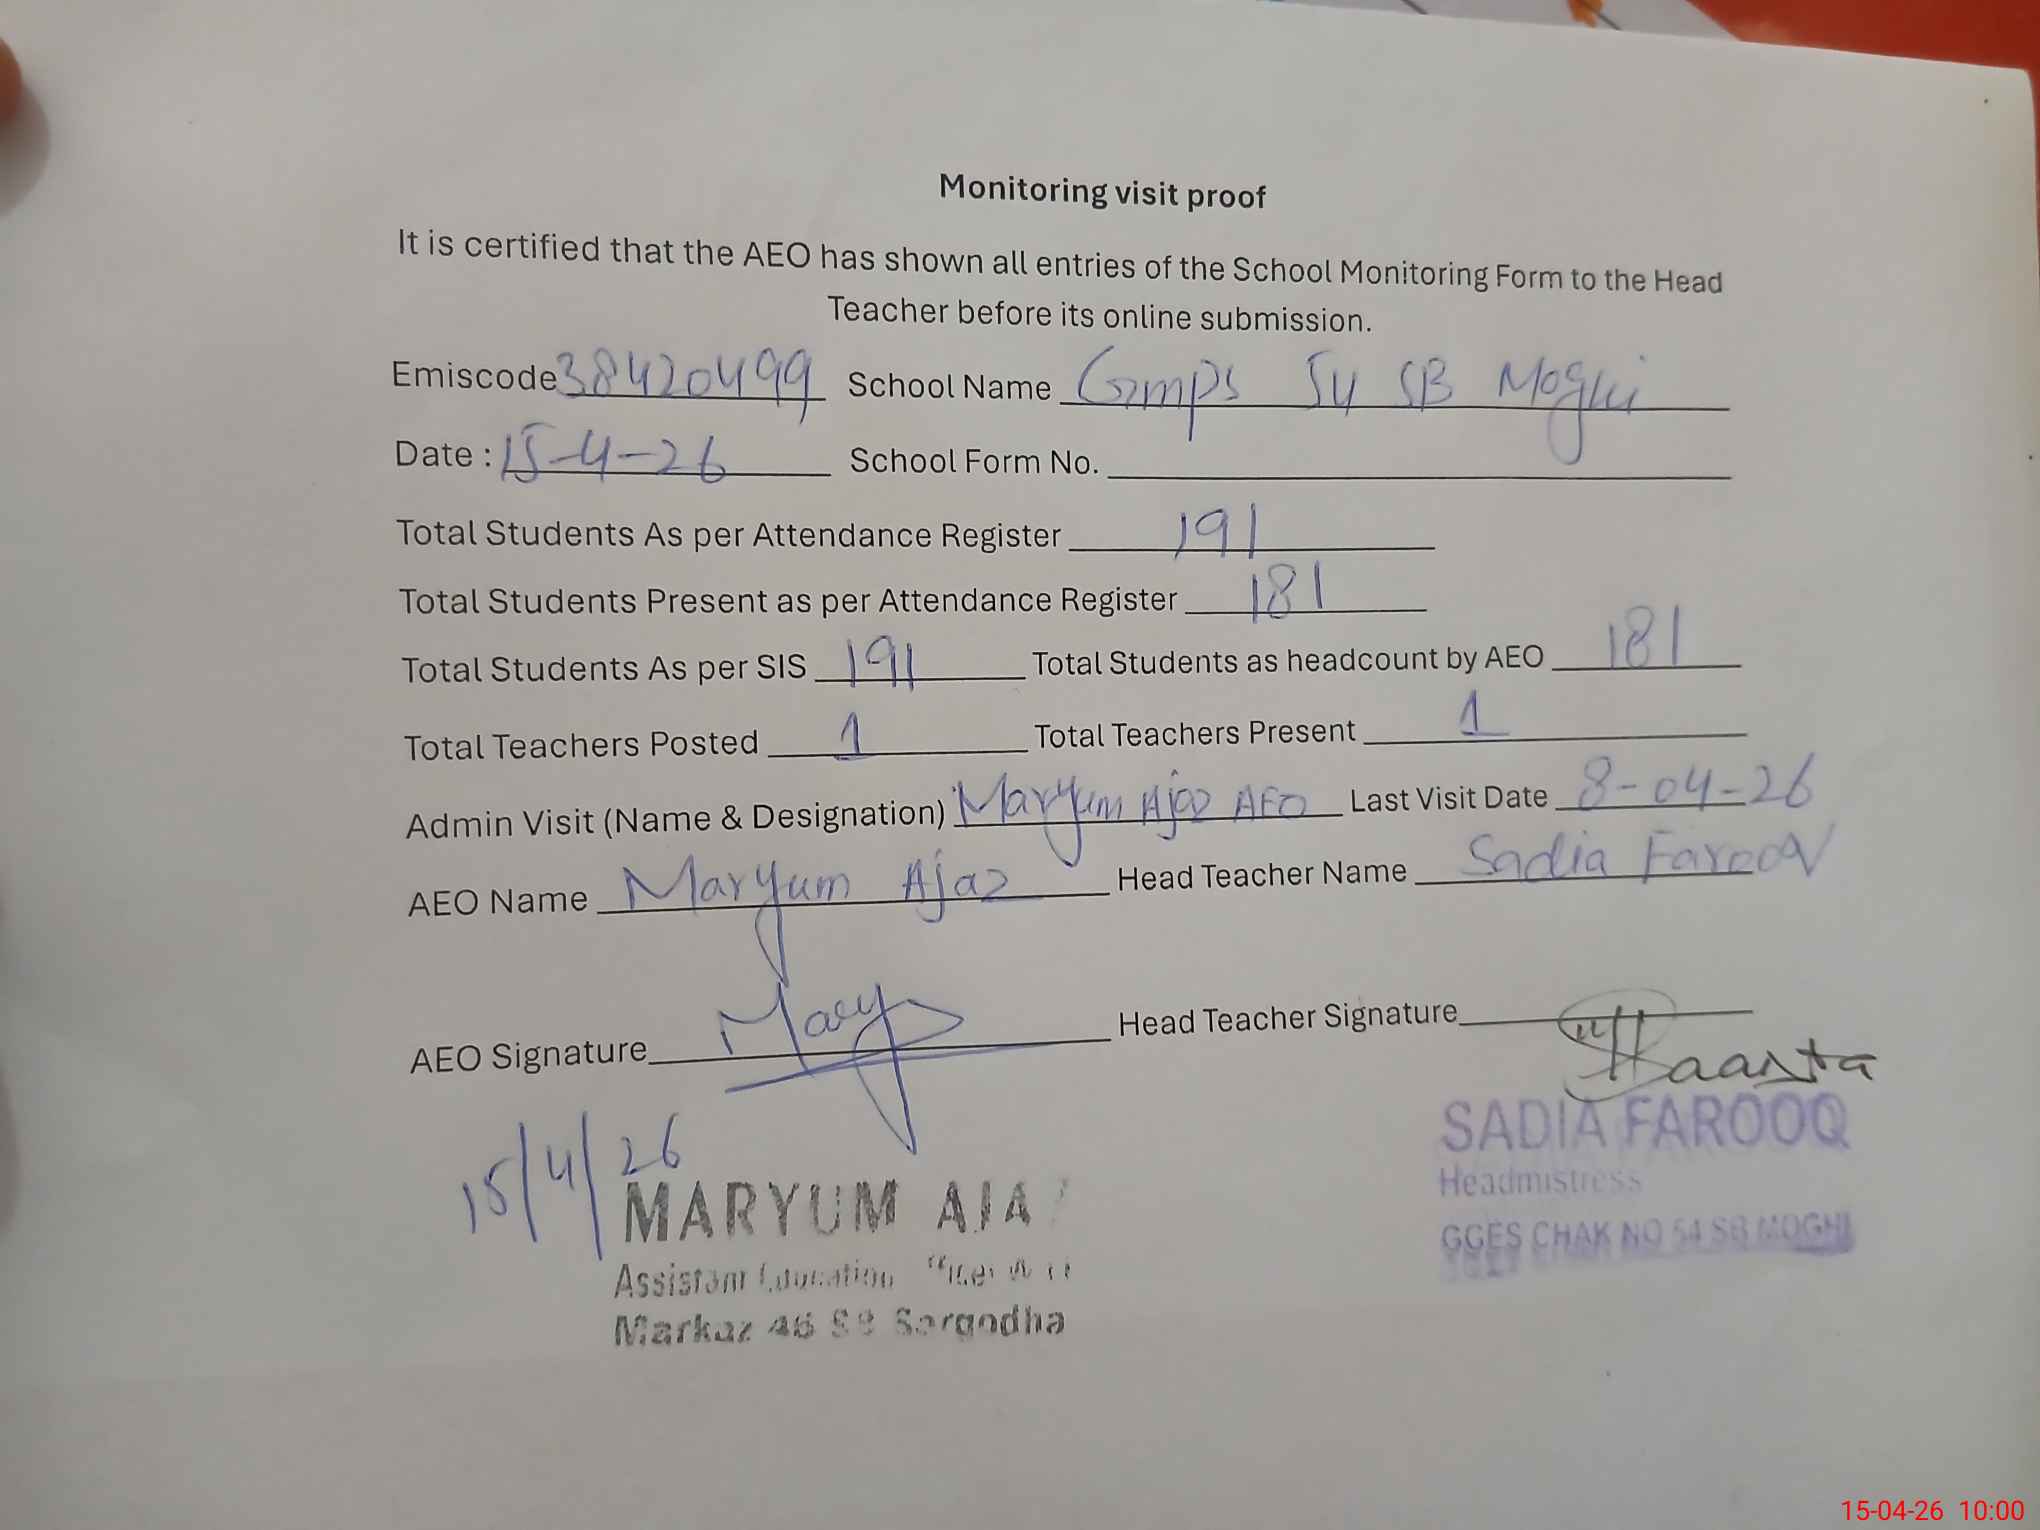 Monitoring visit proof
It is certified that the AEO has shown all entries of the School Monitoring Form to the Head
Teacher before its online submission.
Emiscode 38420499 School Name Gmps 54 SB Moghi
Date : 15-4-26 School Form No.
Total Students As per Attendance Register 191
Total Students Present as per Attendance Register 181
Total Students As per SIS 191 Total Students as headcount by AEO 181
Total Teachers Posted 1 Total Teachers Present 1
Admin Visit (Name & Designation) Maryum Ajaz AEO Last Visit Date 8-04-26
AEO Name Maryum Ajaz Head Teacher Name Sadia Farooq
AEO Signature Mary Head Teacher Signature
15/4/26
MARYUM AJA
Assistant Education
Markaz 46 SB Sargodha
SADIA FAROOQ
Headmistress
GGES CHAK NO 54 SB MOGHI
15-04-26 10:00